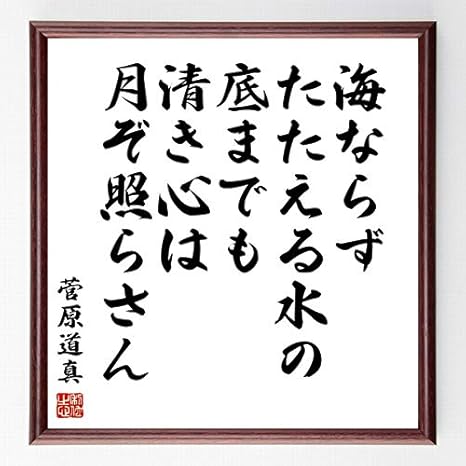 海ならず
たたえる水の
底までも
清き心は
月ぞ照らさん
菅原道真